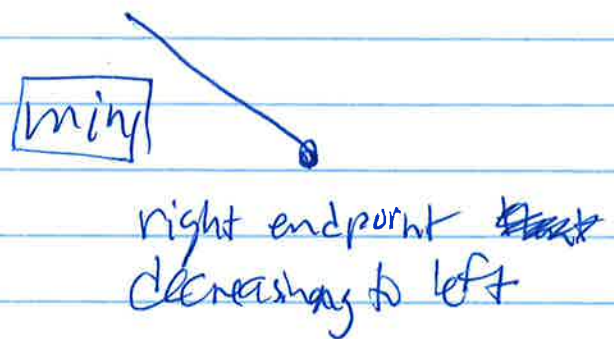 min
right endpoint
decreasing to left